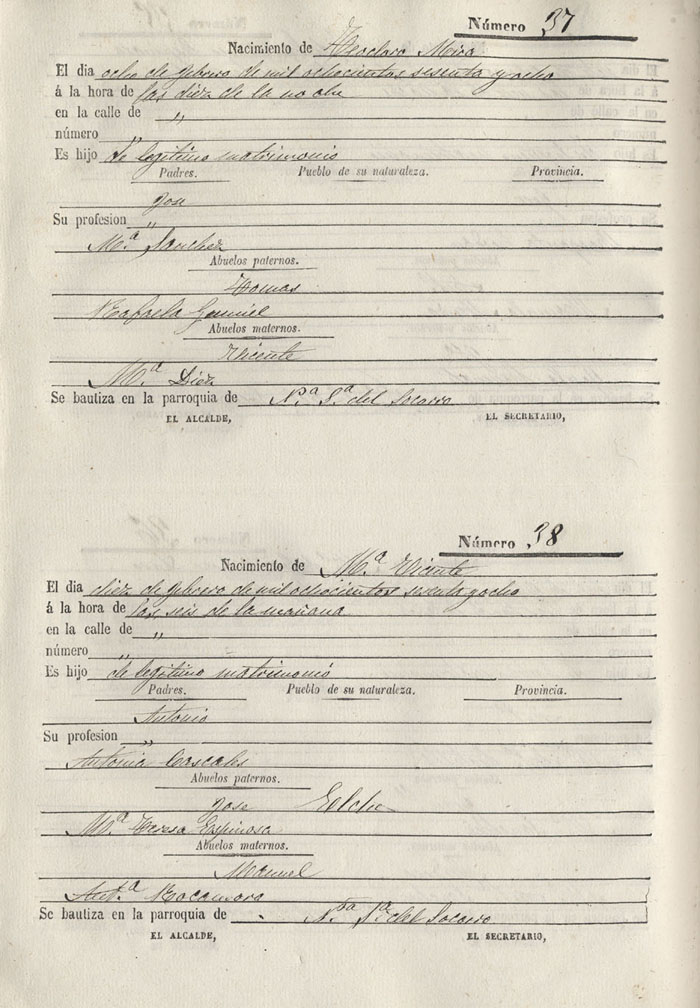 Número 37
Nacimiento de Teodoro Mira
El dia ocho de febrero de mil ochocientos sesenta y ocho
á la hora de las diez de la noche
en la calle de "
número "
Es hijo de legitimo matrimonio
Padres. Pueblo de su naturaleza. Provincia.
Jose
Su profesion "
Mª Sanchez
Abuelos paternos.
Tomas
Rafaela
Abuelos maternos.
Vicente
Mª Diez
Se bautiza en la parroquia de Nª Sª del Socorro
EL ALCALDE, EL SECRETARIO,
Número 38
Nacimiento de Mª Vicente
El dia diez de febrero de mil ochocientos sesenta y ocho
á la hora de las seis de la mañana
en la calle de "
número "
Es hijo de legitimo matrimonio
Padres. Pueblo de su naturaleza. Provincia.
Antonio
Su profesion "
Antonia Cascales
Abuelos paternos.
Jose Elche
Mª Teresa Espinosa
Abuelos maternos.
Manuel
Antª Rocamora
Se bautiza en la parroquia de Nª Sª del Socorro
EL ALCALDE, EL SECRETARIO,